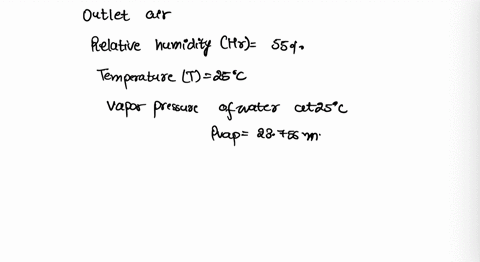 Outlet air
Relative humidity (Hr) = 55%.
Temperature (T) = 25°C
Vapor pressure of water at 25°C
Pvap = 23.756 m.